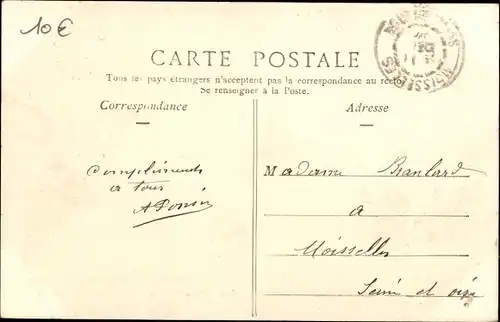 10 €
CARTE POSTALE
Tous les pays étrangers n'acceptent pas la correspondance au recto
Se renseigner à la Poste.
Correspondance
Adresse
Compliments
a tous
Madame Branlard
a
Moisselles
Seine et oise